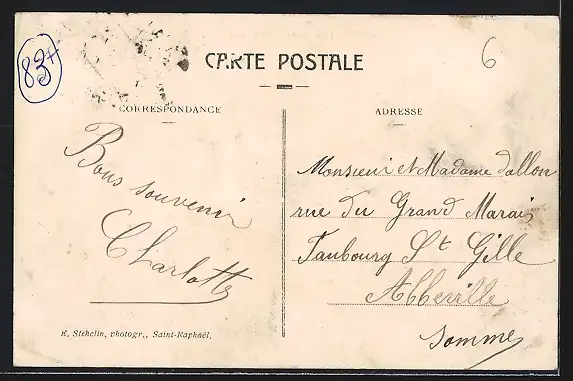 83+
CARTE POSTALE
6
CORRESPONDANCE
Bons souvenir
Charlotte
E. Stehelin, photogr,, Saint-Raphaël.
ADRESSE
Monsieur et Madame dallon
rue du Grand Marais
Faubourg St Gille
Abbeville
Somme